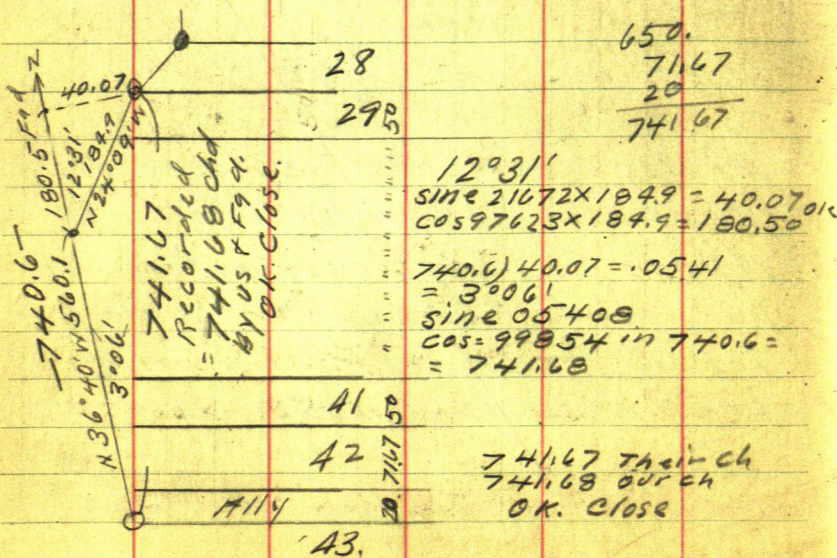 28
29
50
40.07
180.5 Fgd
12°31'
184.9
N 24°09' W
-740.6-
N 36°40' W 560.1
3°06'
741.67
Recorded
= 741.68 chd
By us & Fgd.
O.K. Close.
41
50
42
71.67
Ally
20.
43.
650.
71.67
20
741.67
12°31'
sine 21672 x 184.9 = 40.07 ok
cos 97623 x 184.9 = 180.50
740.6) 40.07 = .0541
= 3°06'
sine 05408
cos = 99854 in 740.6 =
= 741.68
741.67 Their ch
741.68 our ch
OK. Close